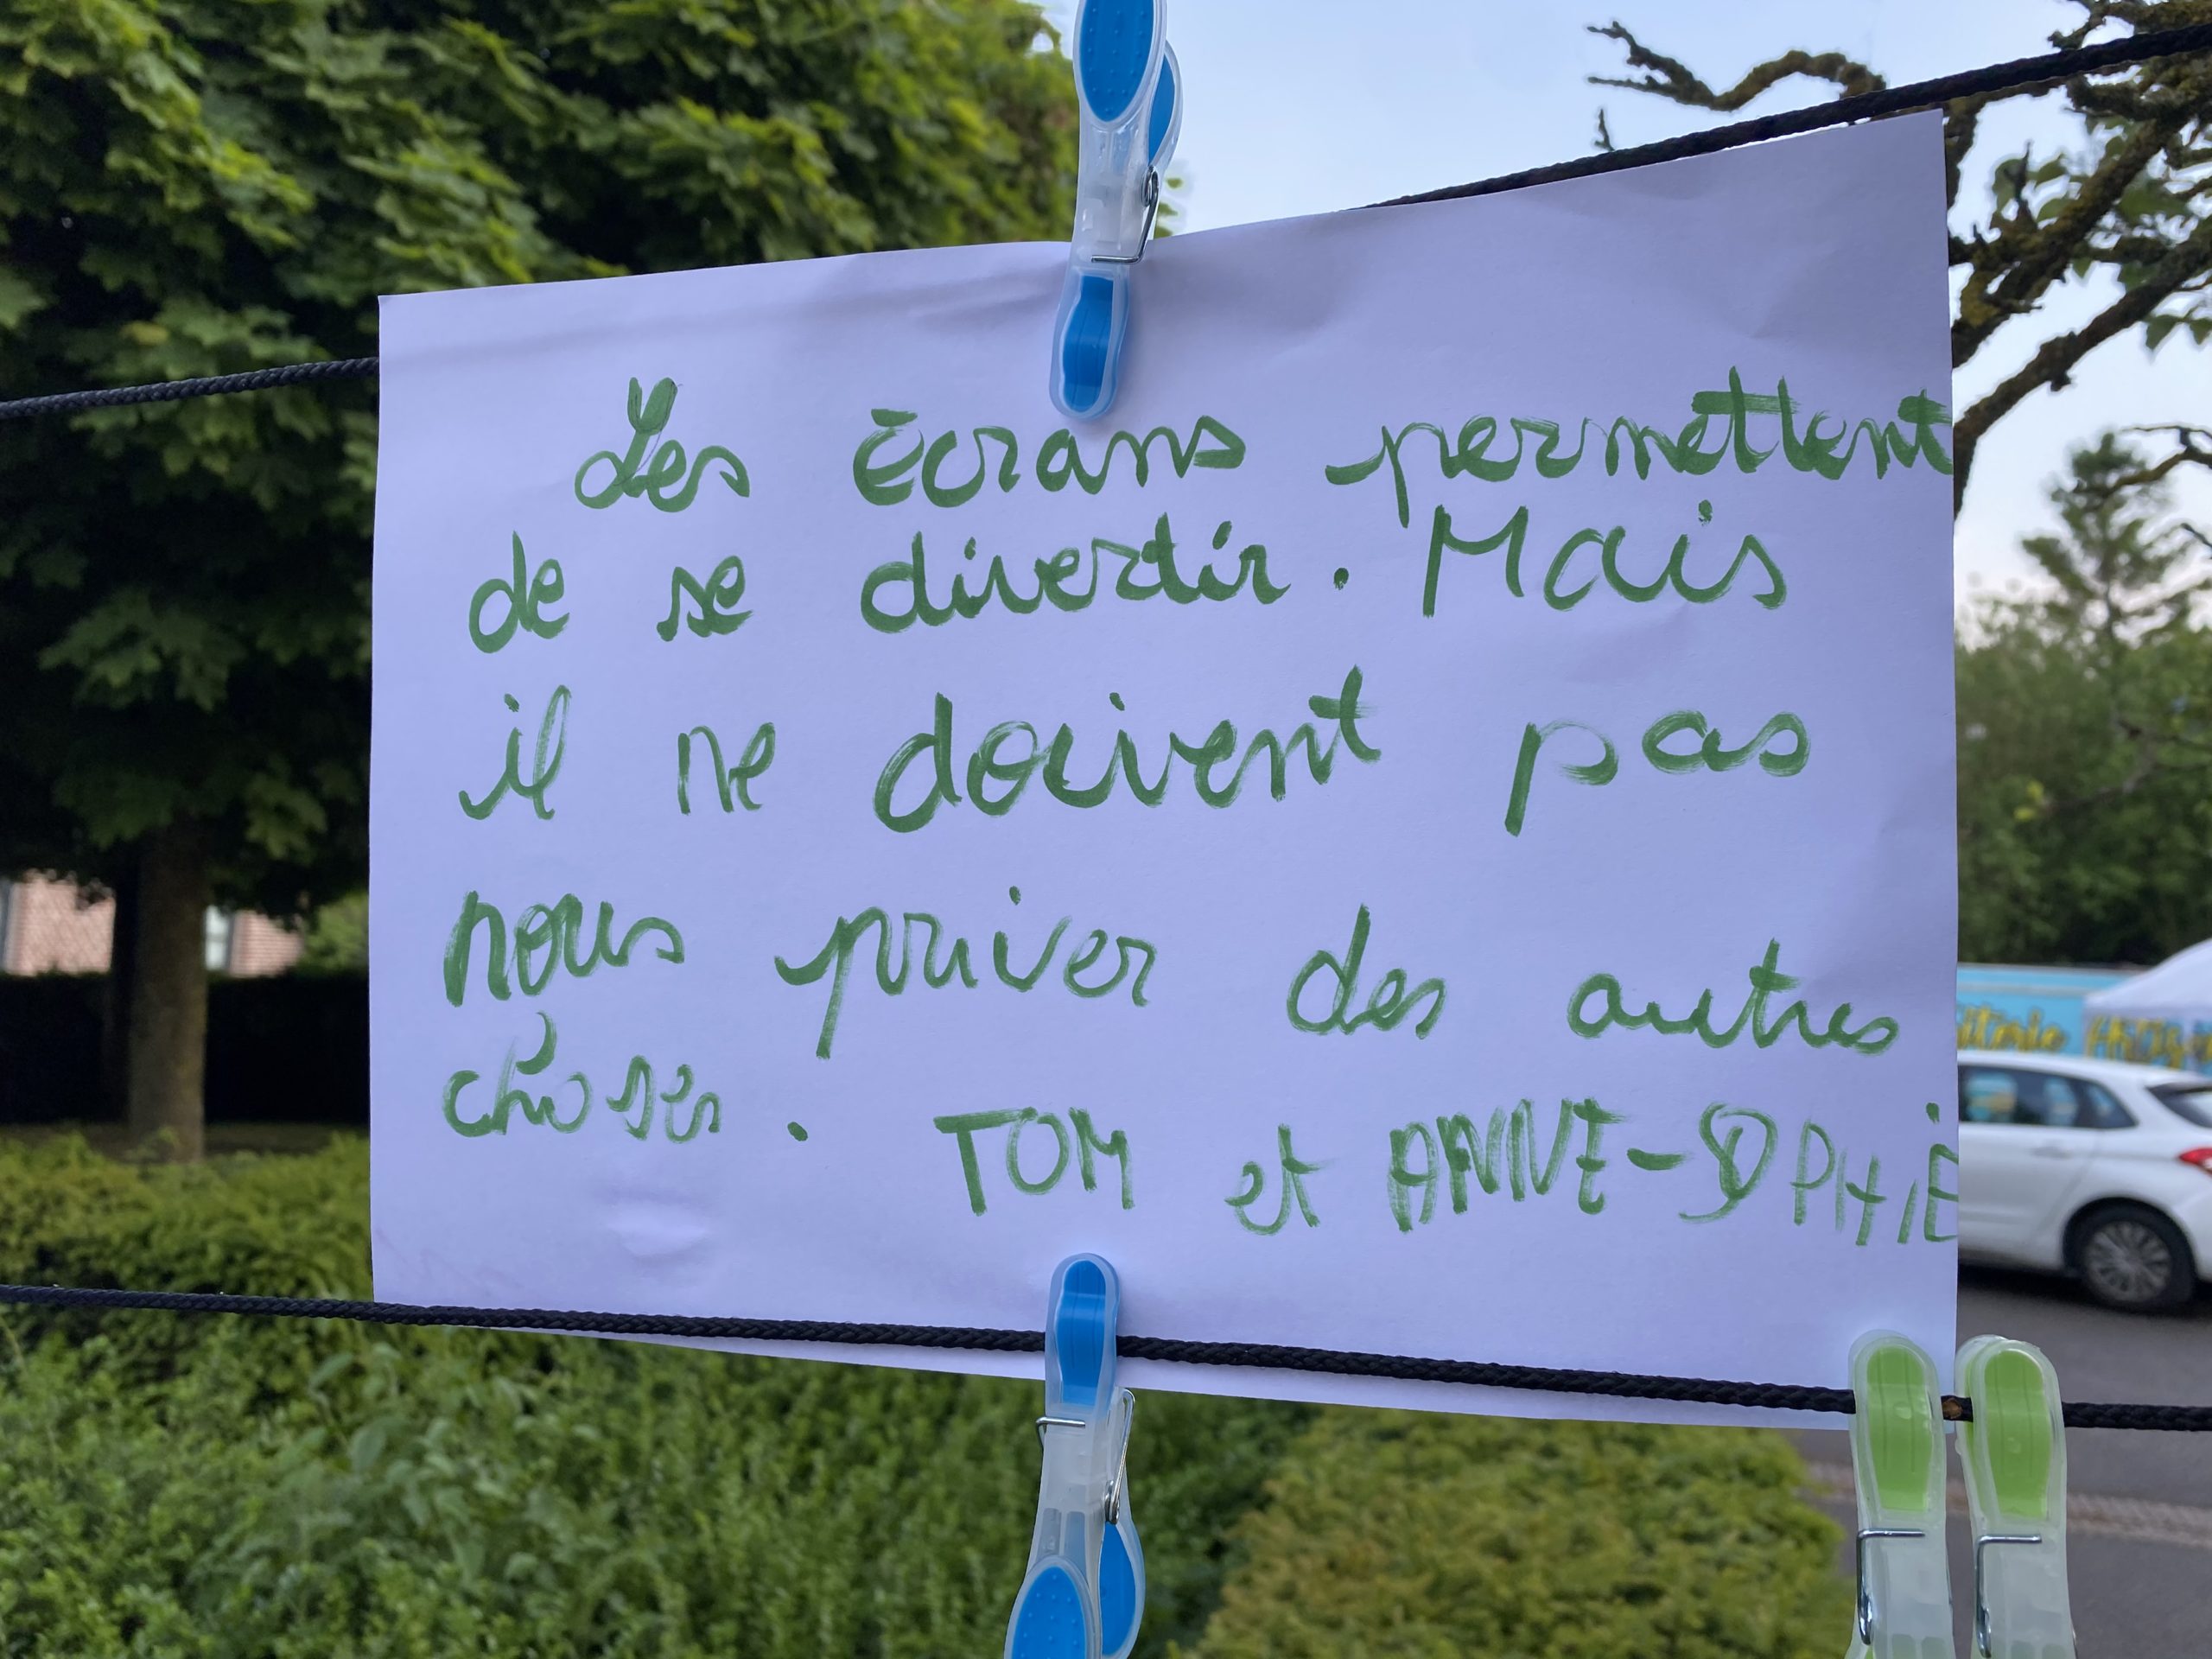 Les écrans permettent
de se divertir. Mais
il ne doivent pas
nous priver des autres
choses. TOM et ANNE-SOPHIE